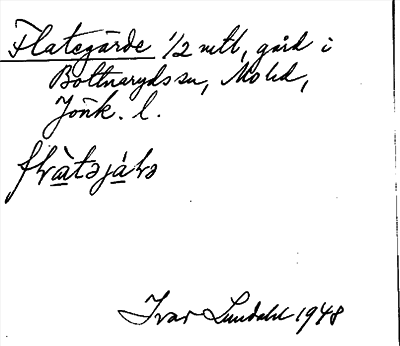 Flategärde 1/2 mtl, gård i
Bottnaryds sn, Mo hd,
Jönk. l.
Ivar Lundahl 1948